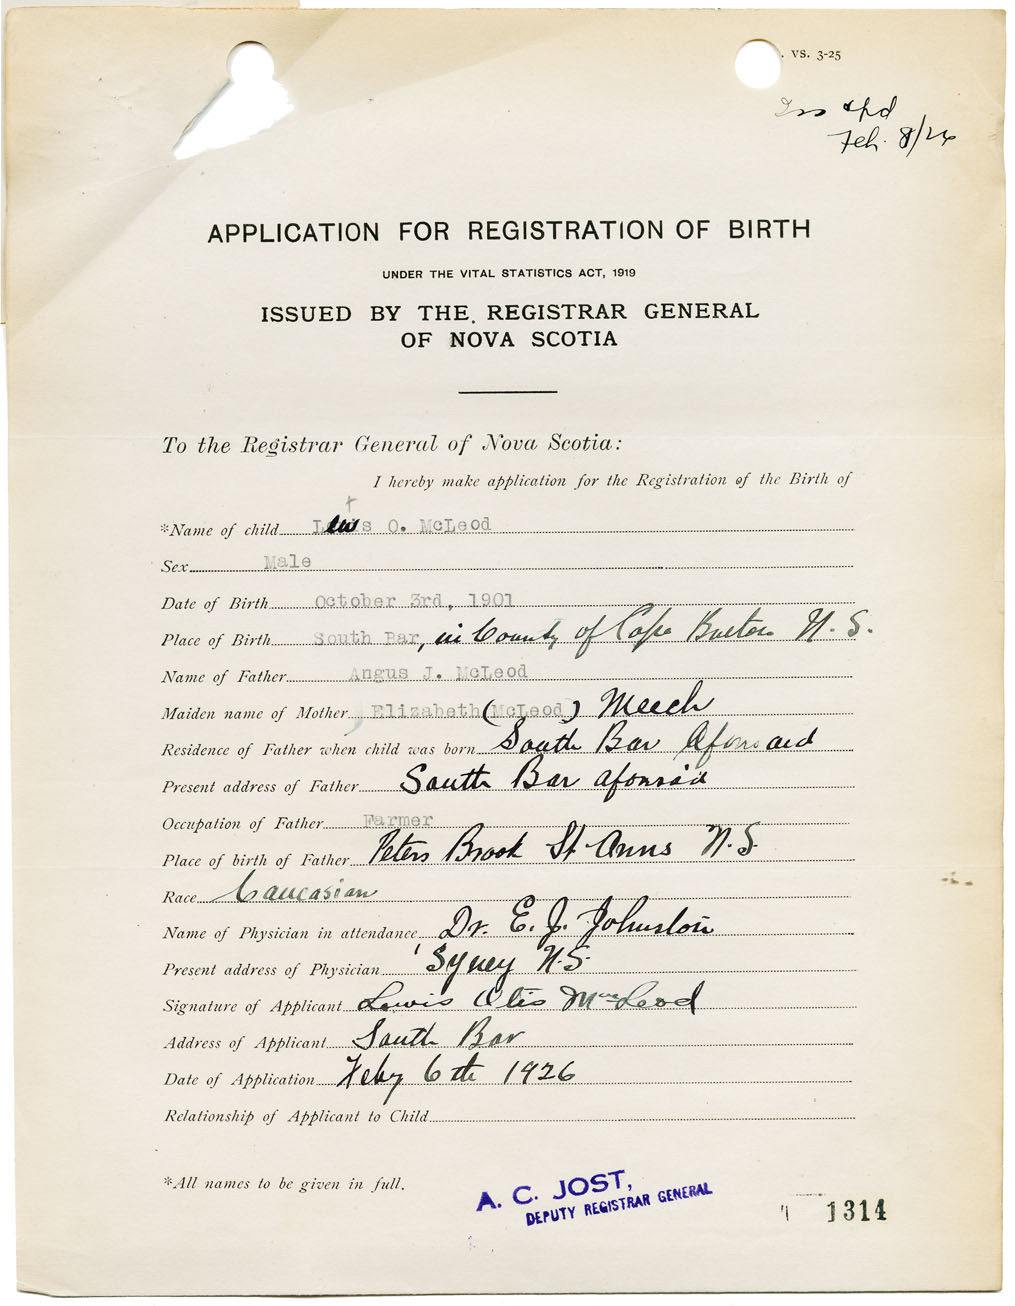 . VS. 3-25
Feb. 8/26
APPLICATION FOR REGISTRATION OF BIRTH
UNDER THE VITAL STATISTICS ACT, 1919
ISSUED BY THE REGISTRAR GENERAL
OF NOVA SCOTIA
To the Registrar General of Nova Scotia:
I hereby make application for the Registration of the Birth of
*Name of child Lewis O. McLeod
Sex Male
Date of Birth October 3rd, 1901
Place of Birth South Bar, in County of Cape Breton N.S.
Name of Father Angus J. McLeod
Maiden name of Mother Elizabeth (McLeod) Meech
Residence of Father when child was born South Bar
Present address of Father South Bar
Occupation of Father Farmer
Place of birth of Father Peters Brook St Anns N.S.
Race Caucasian
Name of Physician in attendance Dr. E. J. Johnston
Present address of Physician Syney N.S.
Signature of Applicant Lewis Otis MacLeod
Address of Applicant South Bar
Date of Application Feby 6th 1926
Relationship of Applicant to Child
*All names to be given in full.
A. C. JOST,
DEPUTY REGISTRAR GENERAL
1314